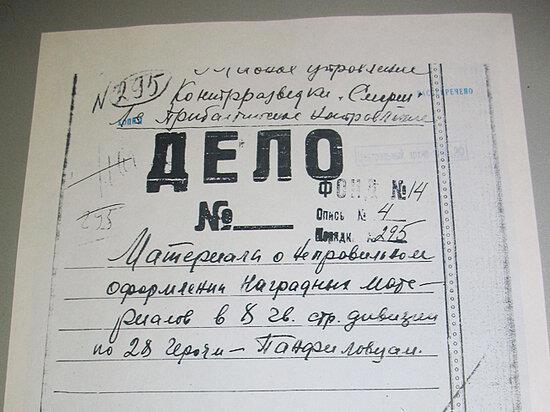 N 295
управление
Контрразведки "Смерш"
Прибалтийское направление
РАССЕКРЕЧЕНО
ДЕЛО
№
ФОНД № 14
Опись № 4
Порядк. 295
295
Материалы о неправильном
оформлении Наградных Мате-
риалов в 8 гв. стр. дивизии
по 28 Героям - Панфиловцам.